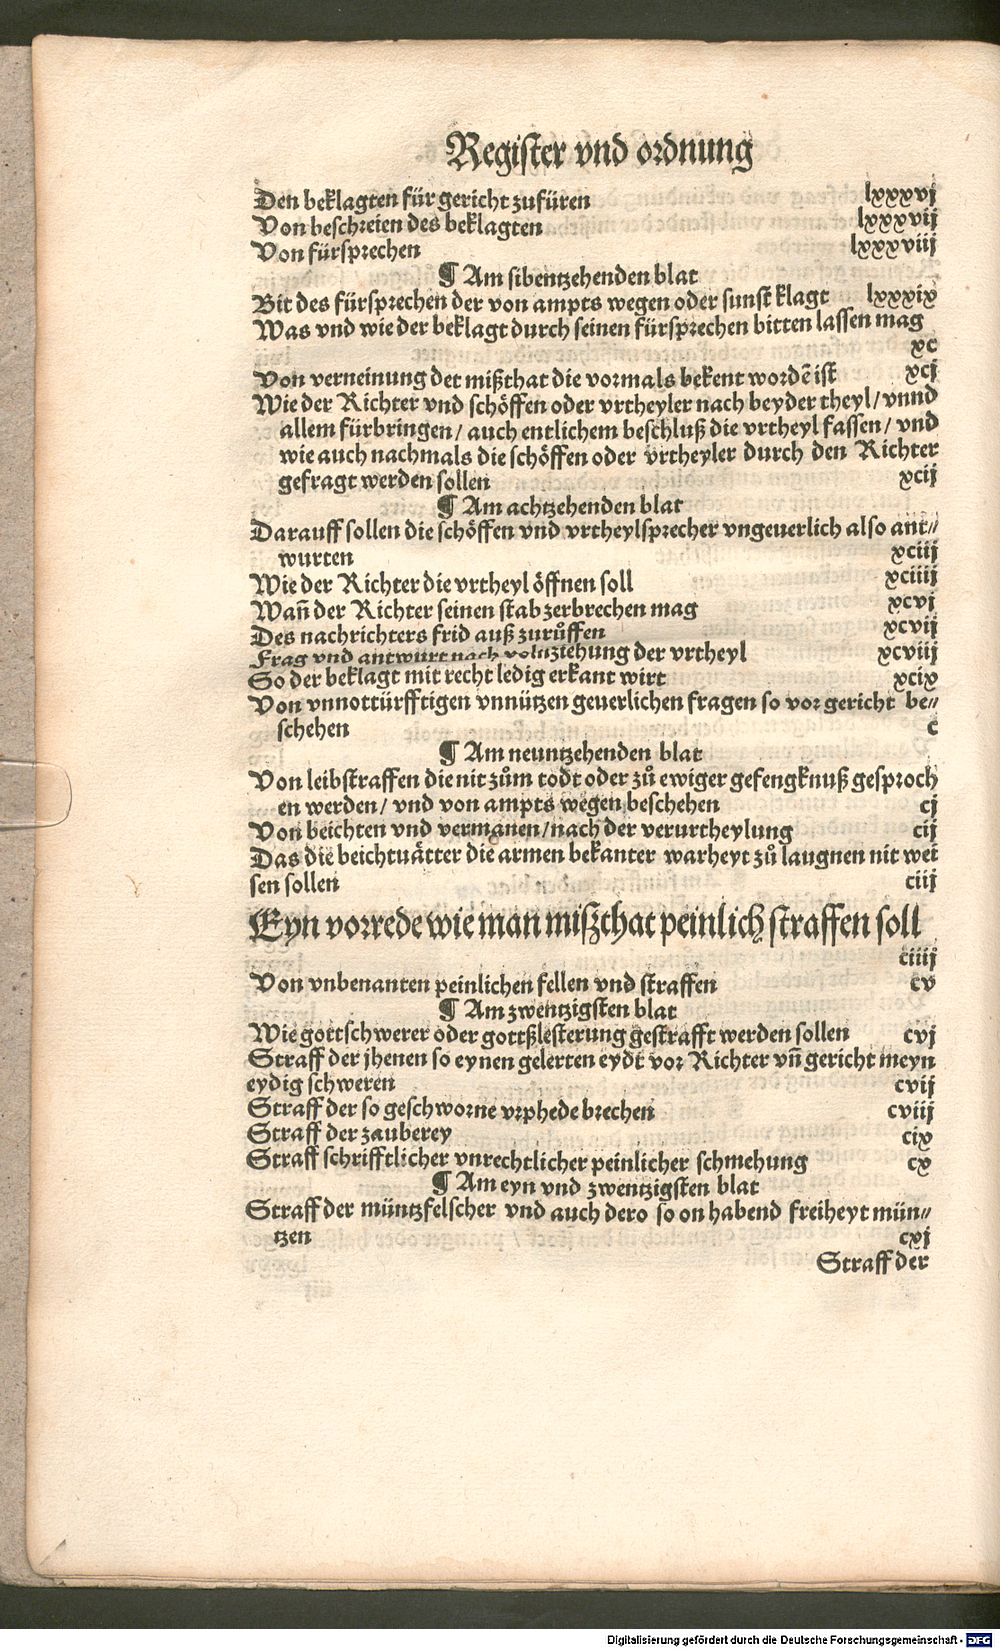 Register vnd ordnung
Den beklagten für gericht zufüren lxxxvj
Von beschreien des beklagten lxxxvij
Von fürsprechen lxxxviij
¶ Am sibentzehenden blat
Bit des fürsprechen der von ampts wegen oder sunst klagt lxxxix
Was vnd wie der beklagt durch seinen fürsprechen bitten lassen mag
xc
Von verneinung det mißthat die vormals bekent wordē ist xcj
Wie der Richter vnd schöffen oder vrtheyler nach beyder theyl / vnnd
allem fürbringen / auch entlichem beschluß die vrtheyl fassen / vnd
wie auch nachmals die schöffen oder vrtheyler durch den Richter
gefragt werden sollen xcij
¶ Am achtzehenden blat
Darauff sollen die schöffen vnd vrtheylsprecher vngeuerlich also ant⸗
wurten xciij
Wie der Richter die vrtheyl öffnen soll xciiij
Wañ der Richter seinen stab zerbrechen mag xcvj
Des nachrichters frid auß zuruͦffen xcvij
Frag vnd antwurt nach volnziehung der vrtheyl xcviij
So der beklagt mit recht ledig erkant wirt xcix
Von vnnottürfftigen vnnützen geuerlichen fragen so vor gericht be⸗
schehen c
¶ Am neuntzehenden blat
Von leibstraffen die nit zuͦm todt oder zuͦ ewiger gefengknuß gesproch
en werden / vnd von ampts wegen beschehen cj
Von beichten vnd vermanen / nach der verurtheylung cij
Das die beichtuätter die armen bekanter warheyt zuͦ laugnen nit wei
sen sollen ciij
Eyn vorrede wie man mißthat peinlich straffen soll
ciiij
Von vnbenanten peinlichen fellen vnd straffen cv
¶ Am zwentzigsten blat
Wie gottschwerer oder gottßlesterung gestrafft werden sollen cvj
Straff der jhenen so eynen gelerten eydt vor Richter vn̄ gericht meyn
eydig schweren cvij
Straff der so geschworne vrphede brechen cviij
Straff der zauberey cix
Straff schrifftlicher vnrechtlicher peinlicher schmehung cx
¶ Am eyn vnd zwentzigsten blat
Straff der müntzfelscher vnd auch dero so on habend freiheyt mün⸗
tzen cxj
Straff der
Digitalisierung gefördert durch die Deutsche Forschungsgemeinschaft - DFG